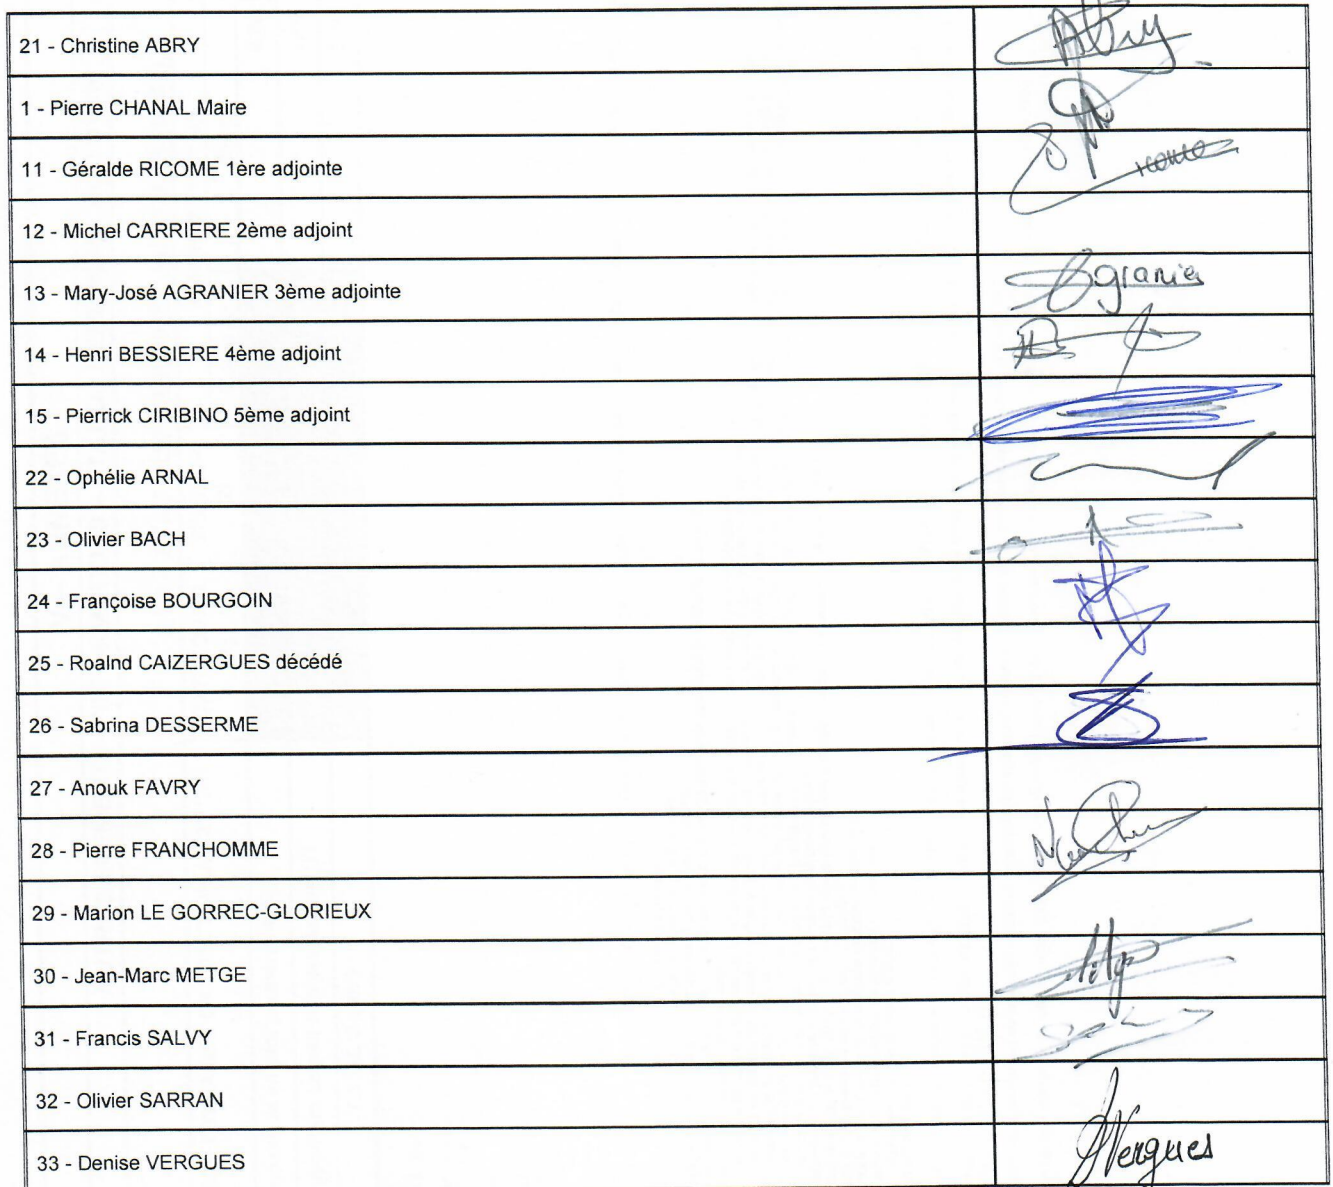 21 - Christine ABRY
Abry
1 - Pierre CHANAL Maire
11 - Géralde RICOME 1ère adjointe
12 - Michel CARRIERE 2ème adjoint
13 - Mary-José AGRANIER 3ème adjointe
Agranier
14 - Henri BESSIERE 4ème adjoint
15 - Pierrick CIRIBINO 5ème adjoint
22 - Ophélie ARNAL
23 - Olivier BACH
24 - Françoise BOURGOIN
25 - Roalnd CAIZERGUES décédé
26 - Sabrina DESSERME
27 - Anouk FAVRY
28 - Pierre FRANCHOMME
29 - Marion LE GORREC-GLORIEUX
30 - Jean-Marc METGE
31 - Francis SALVY
32 - Olivier SARRAN
33 - Denise VERGUES
Vergues